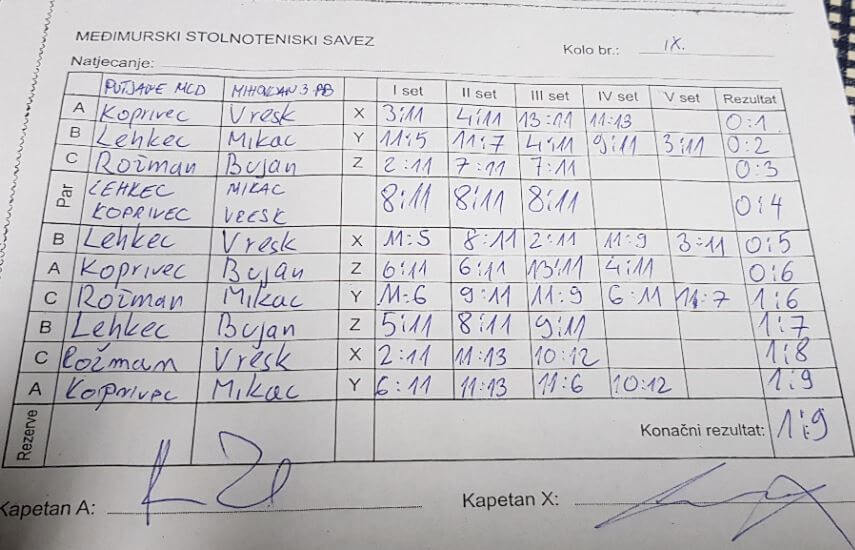 MEĐIMURSKI STOLNOTENISKI SAVEZ
Kolo br.: IX.
Natjecanje:
PUTJANE MCD MIHOVLJAN 3 PB I set II set III set IV set V set Rezultat
A Koprivec Vresk X 3:11 4:11 13:11 11:13 0:1
B Lehkec Mikac Y 11:5 11:7 4:11 9:11 3:11 0:2
C Rožman Bujan Z 2:11 7:11 7:11 0:3
Par LEHKEC MIKAC 8:11 8:11 8:11 0:4
KOPRIVEC VRESK
B Lehkec Vresk X 11:5 8:11 2:11 11:9 3:11 0:5
A Koprivec Bujan Z 6:11 6:11 13:11 4:11 0:6
C Rožman Mikac Y 11:6 9:11 11:9 6:11 11:7 1:6
B Lehkec Bujan Z 5:11 8:11 9:11 1:7
C Rožman Vresk X 2:11 11:13 10:12 1:8
A Koprivec Mikac Y 6:11 11:13 11:6 10:12 1:9
Rezerve Konačni rezultat: 1:9
Kapetan A: Kapetan X: